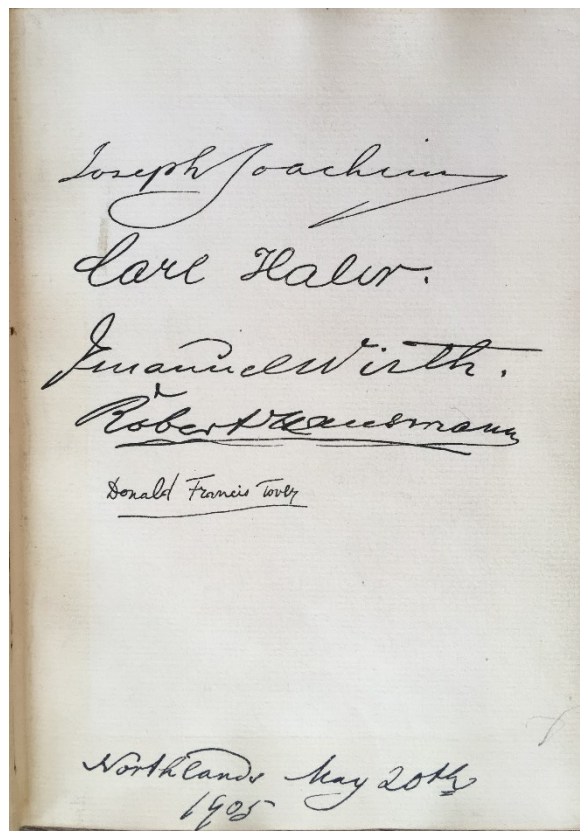 Joseph Joachim
Carl Halir.
Emanuel Wirth.
Robert Hausmann
Donald Francis Tovey
Northlands May 20th
1905